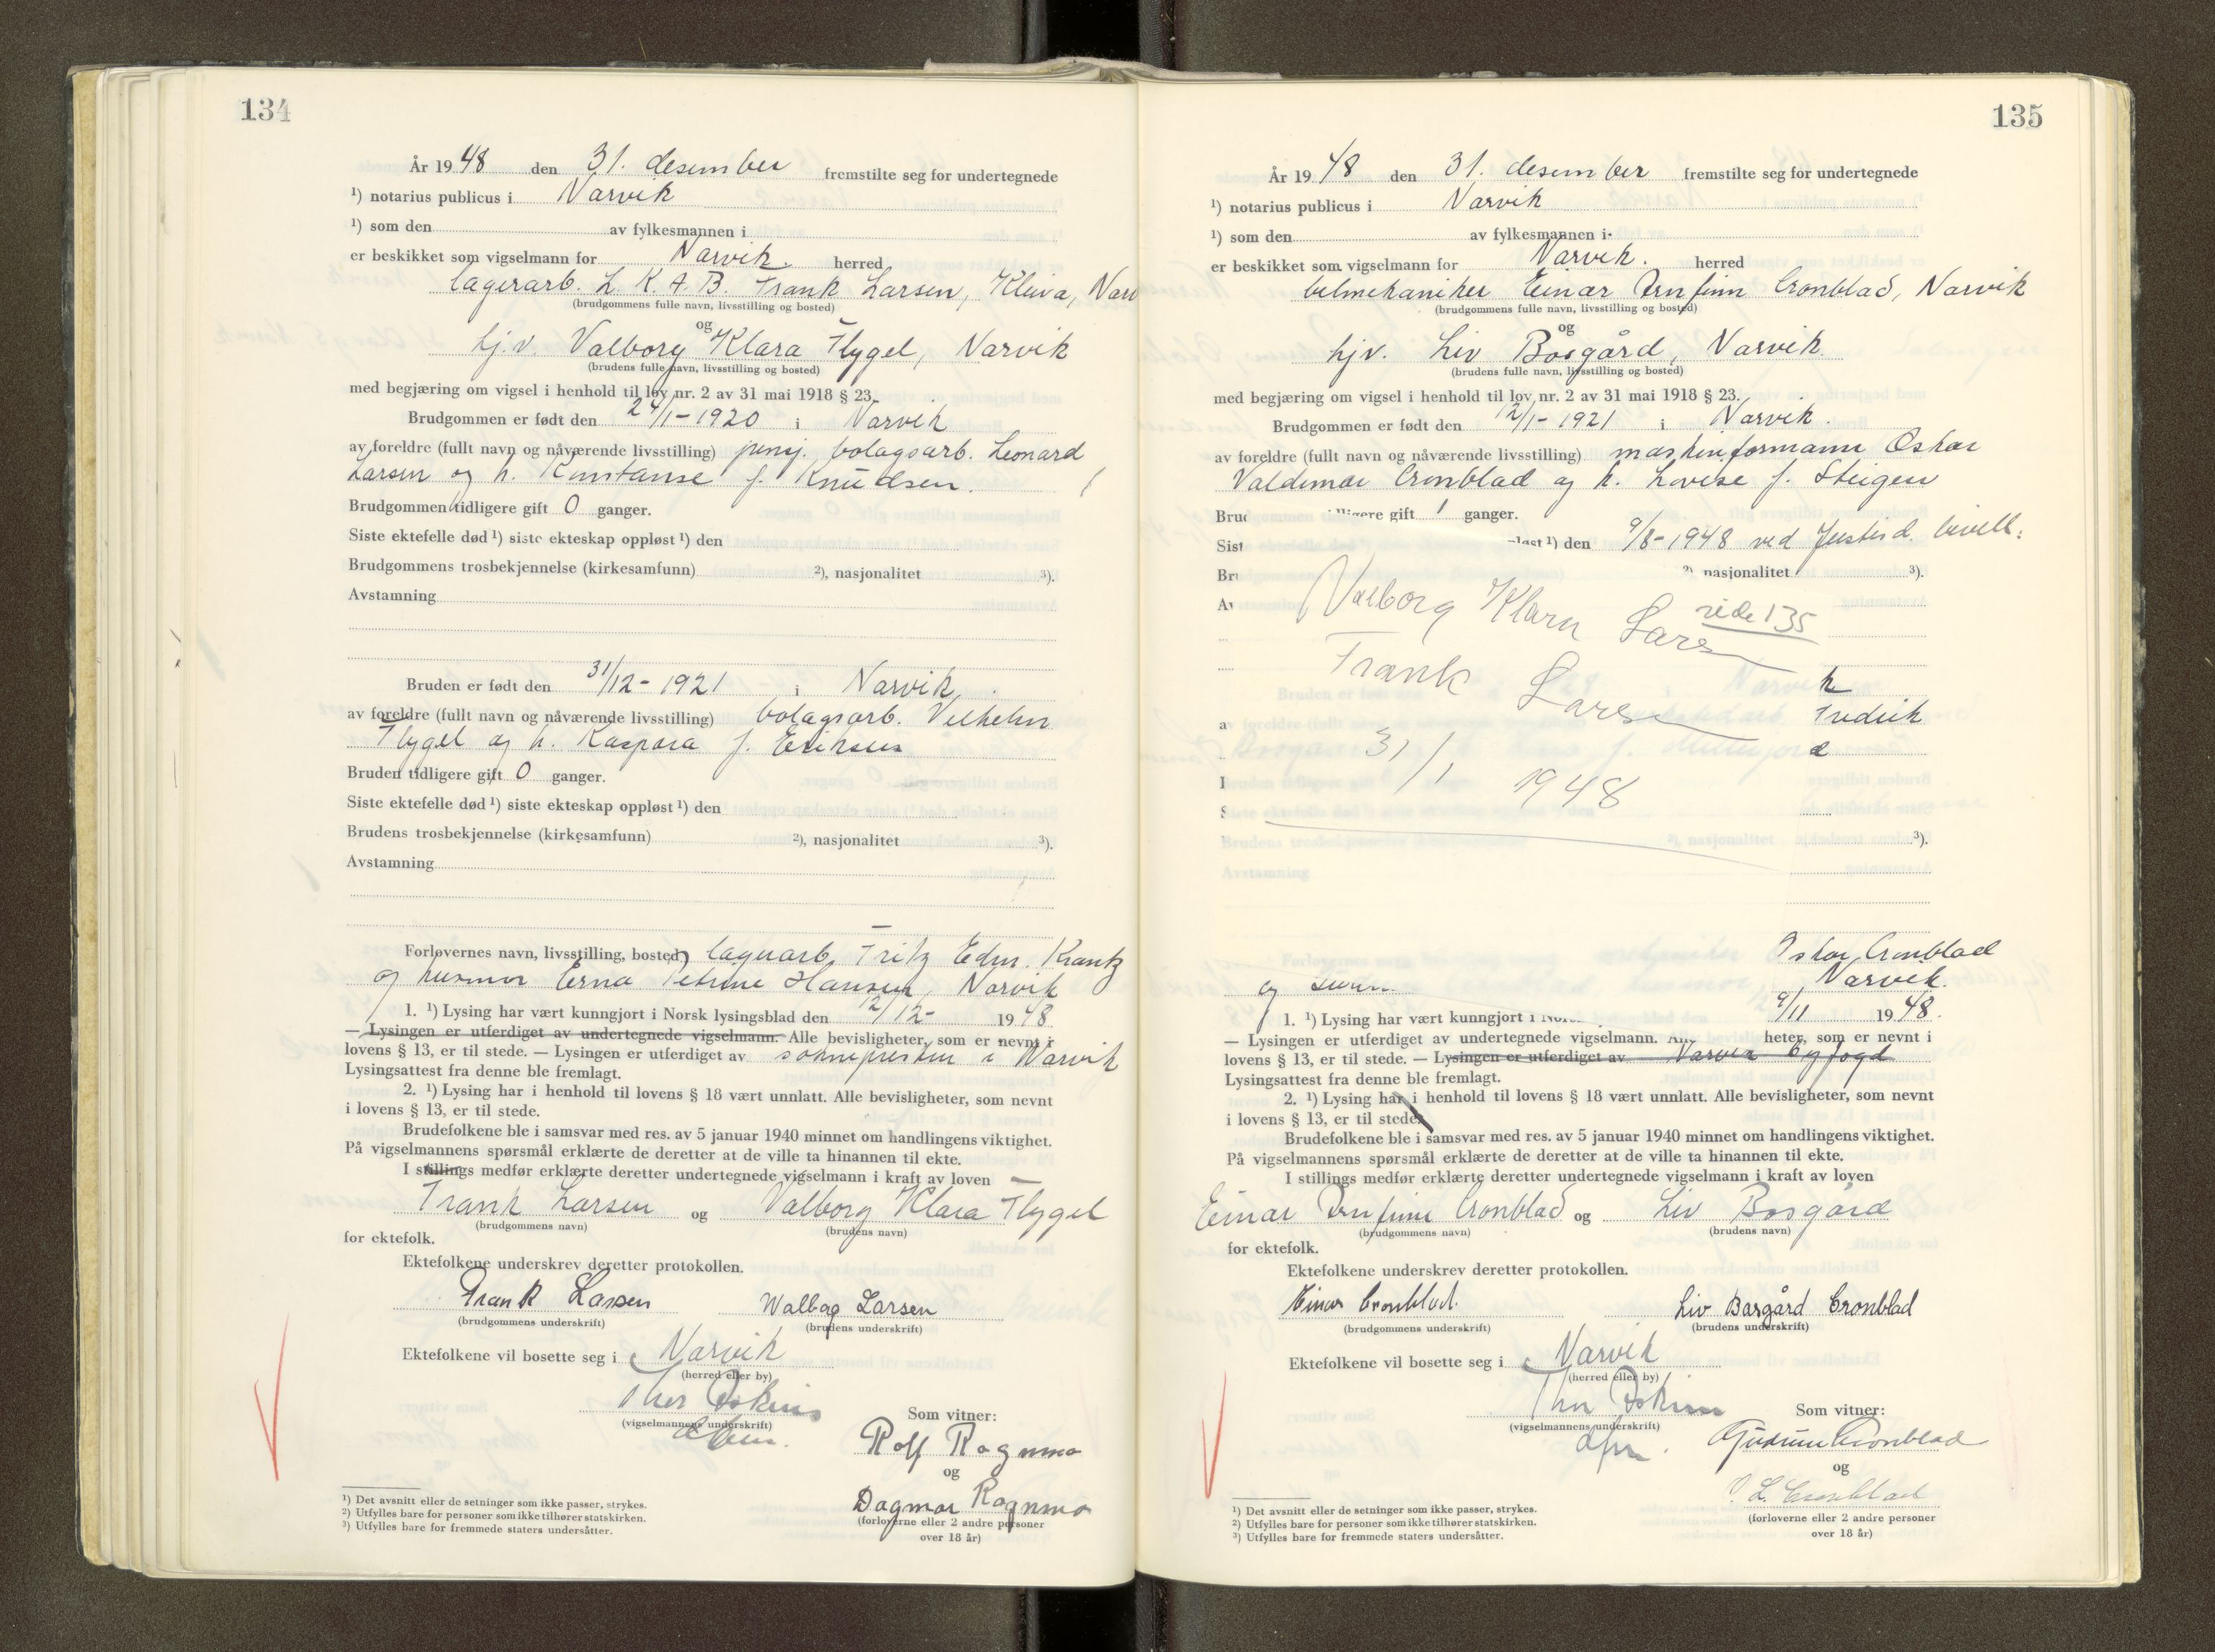 134
År 19 48 den 31. desember fremstilte seg for undertegnede
¹) notarius publicus i Narvik
¹) som den av fylkesmannen i
er beskikket som vigselmann for Narvik. herred
lagerarb. L. K. A. B. Frank Larsen, Kleiva, Narv
(brudgommens fulle navn, livsstilling og bosted)
og
hj.v. Valborg Klara Flygel, Narvik
(brudens fulle navn, livsstilling og bosted)
med begjæring om vigsel i henhold til lov nr. 2 av 31 mai 1918 § 23.
Brudgommen er født den 24/1-1920 i Narvik
av foreldre (fullt navn og nåværende livsstilling) pensj. bolagsarb. Leonard
Larsen og h. Konstanse f. Knudsen.
Brudgommen tidligere gift 0 ganger.
Siste ektefelle død ¹) siste ekteskap oppløst ¹) den
Brudgommens trosbekjennelse (kirkesamfunn) ²), nasjonalitet ³).
Avstamning
Bruden er født den 31/12-1921 i Narvik
av foreldre (fullt navn og nåværende livsstilling) bolagsarb. Vilhelm
Flygel og h. Kaspara f. Eriksen
Bruden tidligere gift 0 ganger.
Siste ektefelle død ¹) siste ekteskap oppløst ¹) den
Brudens trosbekjennelse (kirkesamfunn) ²), nasjonalitet ³).
Avstamning
Forlovernes navn, livsstilling, bosted) lagerarb. Fritz Edm. Krantz
og husmor Erna Petrine Hansen, Narvik
1. ¹) Lysing har vært kunngjort i Norsk lysingsblad den 12/12- 19 48
— Lysingen er utferdiget av undertegnede vigselmann. Alle bevisligheter, som er nevnt i
lovens § 13, er til stede. — Lysingen er utferdiget av soknepresten i Narvik
Lysingsattest fra denne ble fremlagt.
2. ¹) Lysing har i henhold til lovens § 18 vært unnlatt. Alle bevisligheter, som nevnt
i lovens § 13, er til stede.
Brudefolkene ble i samsvar med res. av 5 januar 1940 minnet om handlingens viktighet.
På vigselmannens spørsmål erklærte de deretter at de ville ta hinannen til ekte.
I stillings medfør erklærte deretter undertegnede vigselmann i kraft av loven
Frank Larsen og Valborg Klara Flygel
(brudgommens navn) (brudens navn)
for ektefolk.
Ektefolkene underskrev deretter protokollen.
Frank Larsen Walborg Larsen
(brudgommens underskrift) (brudens underskrift)
Ektefolkene vil bosette seg i Narvik
(herred eller by)
(vigselmannens underskrift)
Som vitner:
Rolf Ragnmo
og
Dagmar Ragnmo
(forloverne eller 2 andre personer
over 18 år)
¹) Det avsnitt eller de setninger som ikke passer, strykes.
²) Utfylles bare for personer som ikke tilhører statskirken.
³) Utfylles bare for fremmede staters undersåtter.
135
År 19 48 den 31. desember fremstilte seg for undertegnede
¹) notarius publicus i Narvik
¹) som den av fylkesmannen i
er beskikket som vigselmann for Narvik. herred
bilmekaniker Einar Arnfinn Cronblad, Narvik
(brudgommens fulle navn, livsstilling og bosted)
og
hjv. Liv Bosgård, Narvik
(brudens fulle navn, livsstilling og bosted)
med begjæring om vigsel i henhold til lov nr. 2 av 31 mai 1918 § 23.
Brudgommen er født den 12/1-1921 i Narvik.
av foreldre (fullt navn og nåværende livsstilling) maskinformann Oskar
Valdemar Cronblad og h. Lovise f. Steigen
gift 1 ganger.
den 9/8-1948 ved Justisd. bevill.
nasjonalitet ³).
Valborg Klara Lars
side 135
Frank Larse
31/1 1948
k
Fredrik
³).
Oskar Cronblad
og Narvik.
1. ¹) Lysing har vært kunngjort i 9/11 19 48.
— Lysingen er utferdiget av undertegnede vigselmann. heter, som er nevnt i
lovens § 13, er til stede. — Lysingen er utferdiget av Narvik byfogd
Lysingsattest fra denne ble fremlagt.
2. ¹) Lysing har i henhold til lovens § 18 vært unnlatt. Alle bevisligheter, som nevnt
i lovens § 13, er til stede.
Brudefolkene ble i samsvar med res. av 5 januar 1940 minnet om handlingens viktighet.
På vigselmannens spørsmål erklærte de deretter at de ville ta hinannen til ekte.
I stillings medfør erklærte deretter undertegnede vigselmann i kraft av loven
Einar Arnfinn Cronblad og Liv Bosgård
(brudgommens navn) (brudens navn)
for ektefolk.
Ektefolkene underskrev deretter protokollen.
Einar Cronblad. Liv Bosgård Cronblad
(brudgommens underskrift) (brudens underskrift)
Ektefolkene vil bosette seg i Narvik
(herred eller by)
(vigselmannens underskrift)
Som vitner:
Gudrun Cronblad
og
L. Cronblad
(forloverne eller 2 andre personer
over 18 år)
¹) Det avsnitt eller de setninger som ikke passer, strykes.
²) Utfylles bare for personer som ikke tilhører statskirken.
³) Utfylles bare for fremmede staters undersåtter.